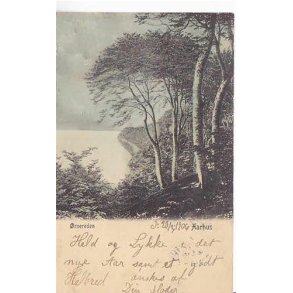 Ørnereden
Aarhus
Held og Lykke i det
nye Aar samt et godt
Helbred ønskes af
Din Moder